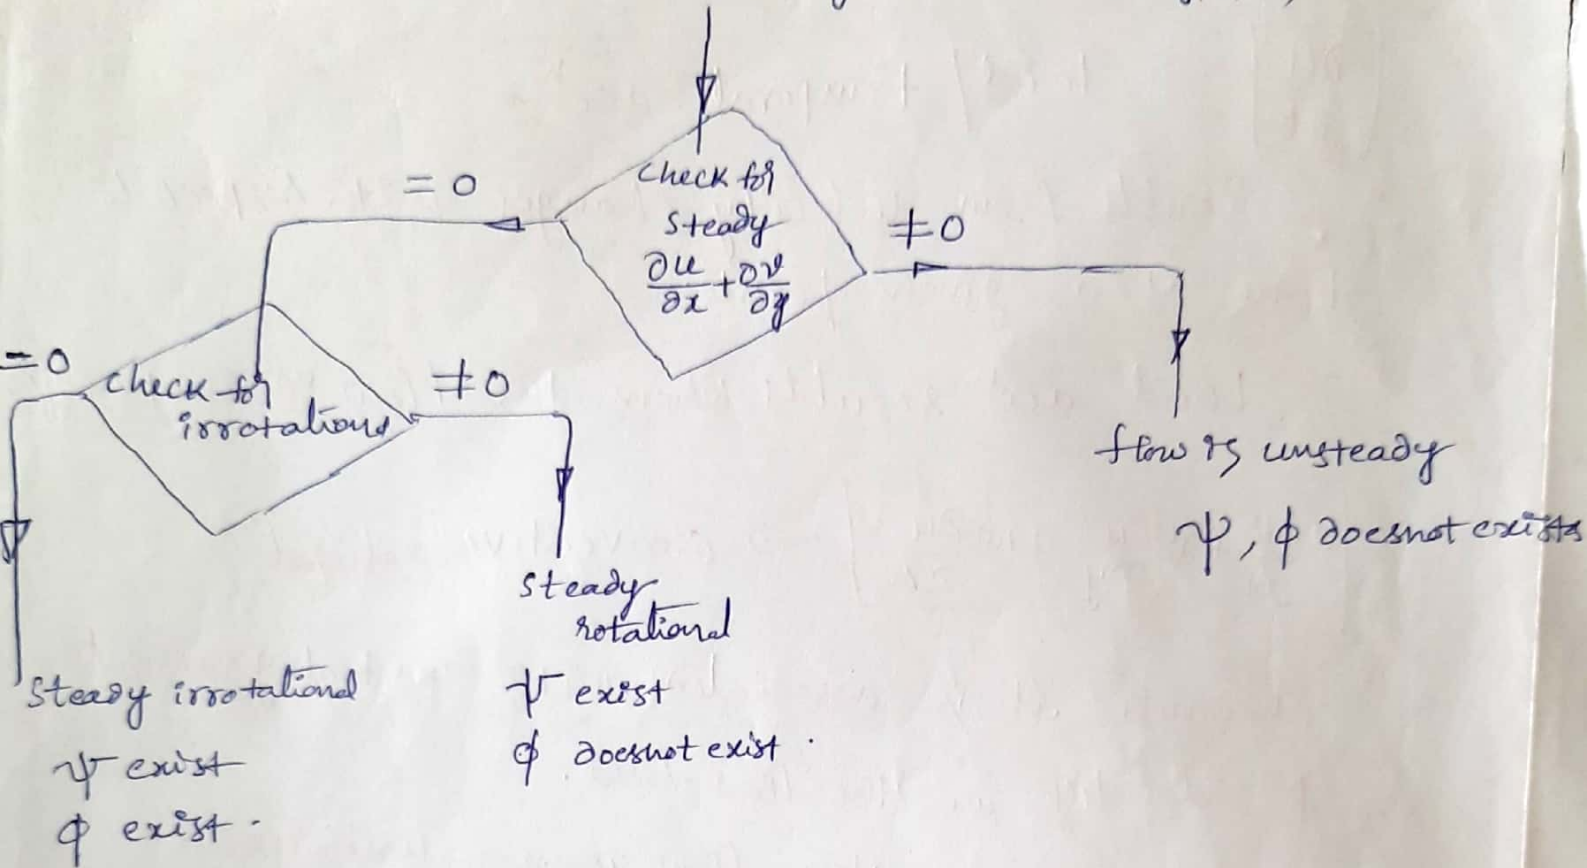 = 0
check for
steady
∂u/∂x + ∂v/∂y
≠0
= 0
check for
irrotational
≠0
flow is unsteady
ψ, ϕ doesnot exists
steady
rotational
ψ exist
ϕ doesnot exist .
steady irrotational
ψ exist
ϕ exist .